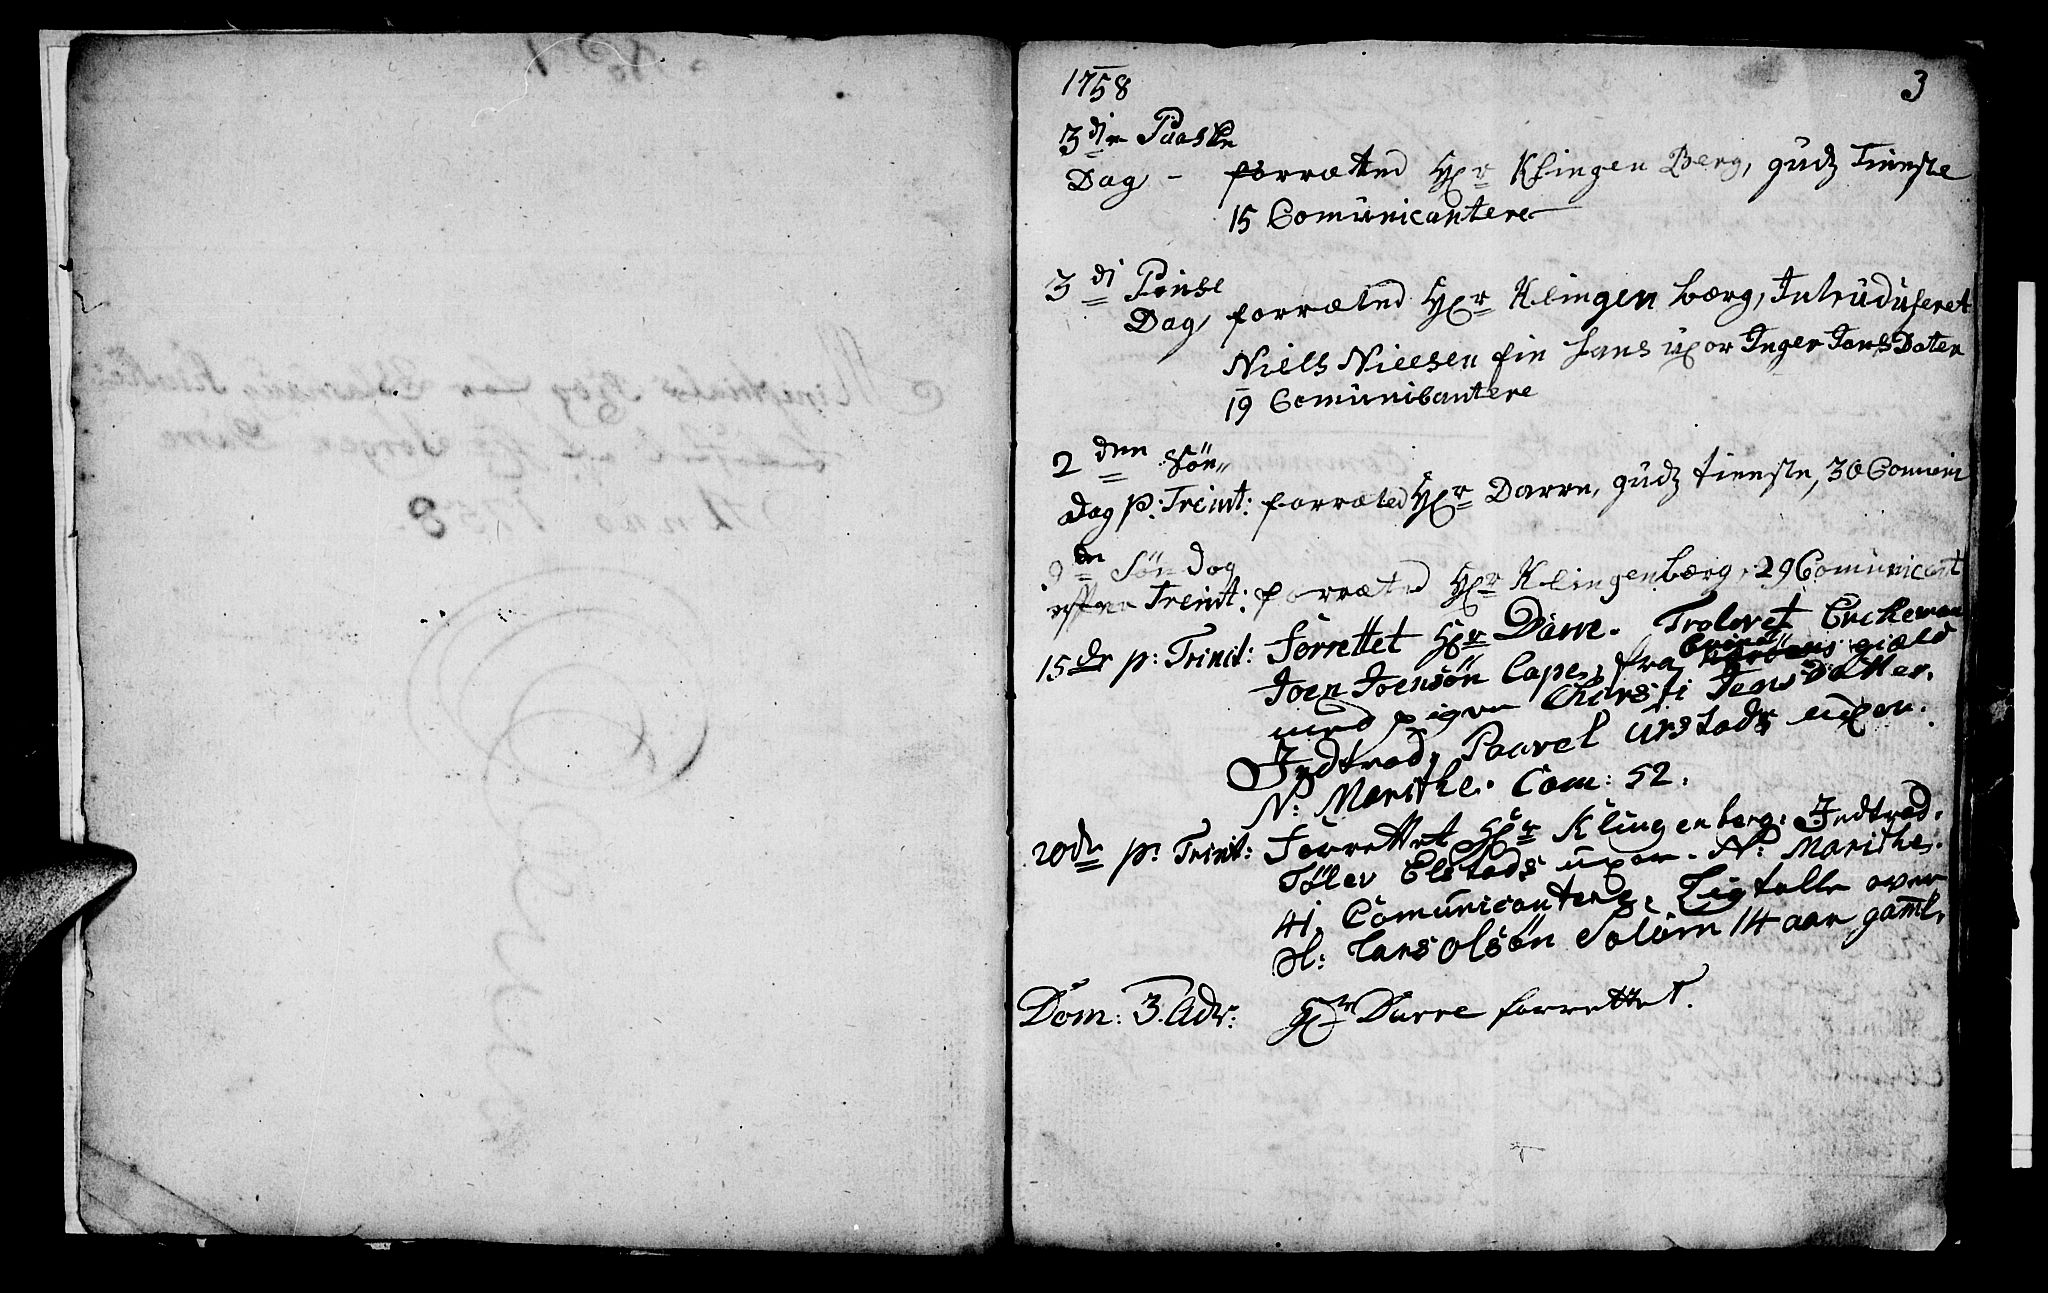 1758
3
3die Paaske
Dag - forrætted Hr Klingen Berg, gudz Tieneste
15 Comunicantere
3di Pinse
Dag forræted Hr Klingenbærg, Intruduseret
Niels Nielsen fin hans uxor Inger Jans Dater
19 Comunicantere
2den Søn„
Dag p: Treint: forræted Hr Darre, gudz tieneste, 30 Comuni
9de Søn Dag
efter Treint: forræted Hr Klingenbærg, 29 Comunicant
15de p: Trinit: Forrettet Hr Darre. Troloret Enckeman
Joen Joensøn Capes, fra giæld
med pigen Chirsti Jens Datter.
Indtrod, Paavel Urstads uxor.
N: Marithe. Com: 52.
20de p: Trinit: Forrettet Hr Klingenberg. Indtrod.
Tølev Elstads uxor. N: Marithe.
41. Comunicantere. Ligtalle over
Sl: Lars Olsøn Solem 14 aar gaml.
Dom: 3. Adv: Hr Darre forrettet.